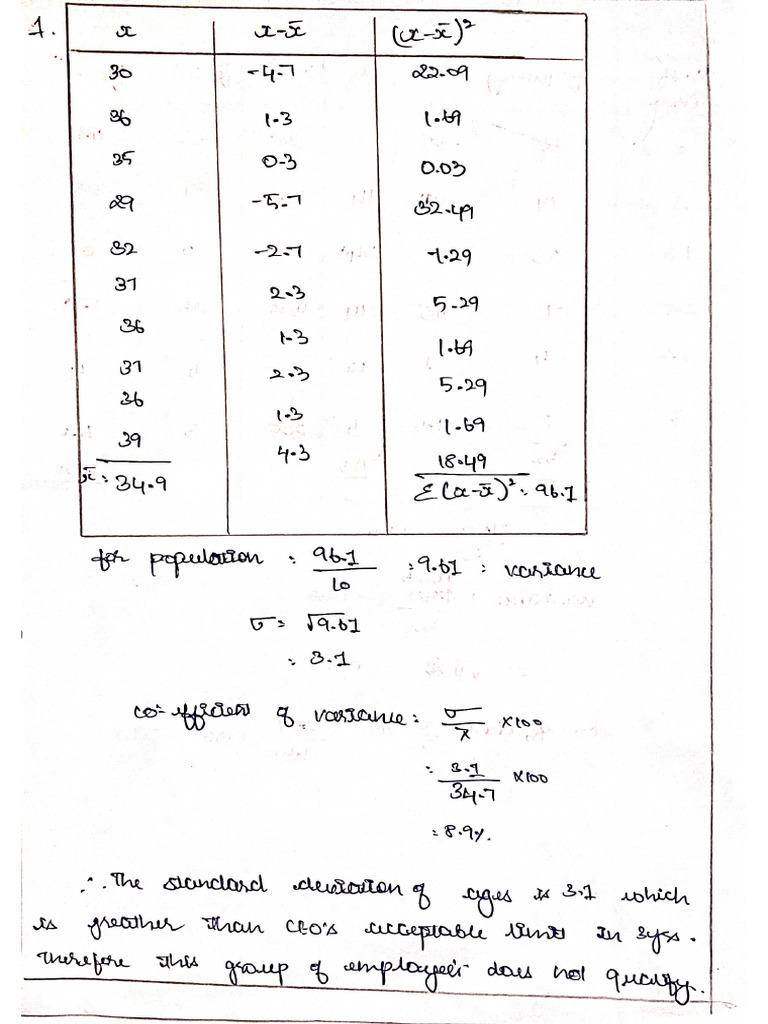 1. x x-x̄ (x-x̄)²
30 -4.7 22.09
36 1.3 1.69
35 0.3 0.03
29 -5.7 32.49
32 -2.7 7.29
37 2.3 5.29
36 1.3 1.69
37 2.3 5.29
36 1.3 1.69
39 4.3 18.49
x̄ = 34.9 Σ(x-x̄)² = 96.1
for population = 96.1/10 = 9.61 = variance
σ = √9.61
= 3.1
co-efficient of variance = σ/x̄ ×100
= 3.1/34.7 ×100
= 8.9%
∴ The standard deviation of ages is 3.1 which
is greather than CEO's acceptable limit in 3yrs.
Therefore this group of employee's does not qualify.